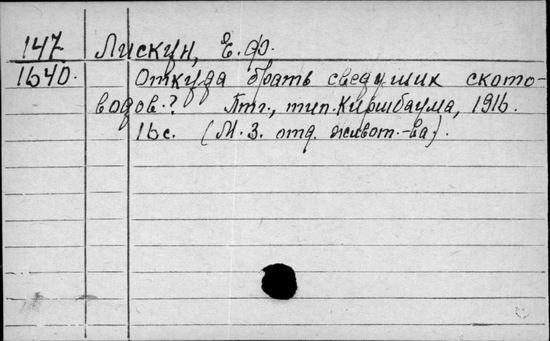 147 Лискун, Е. Ф.
1640. Откуда брать сведущих ското-
водов.? Птг., тип. Киршбаума, 1916.
16 с. (М. З. отд. живот.-ва).